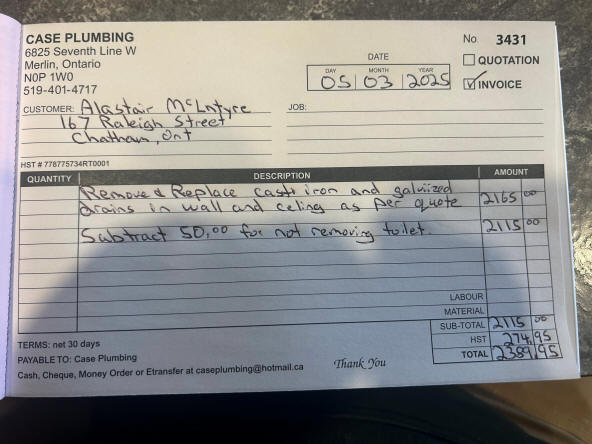 CASE PLUMBING
6825 Seventh Line W
Merlin, Ontario
N0P 1W0
519-401-4717
No. 3431
DATE
DAY MONTH YEAR
05 03 2025
QUOTATION
INVOICE
CUSTOMER: Alastair McIntyre
167 Raleigh Street
Chatham, Ont
JOB:
HST # 778775734RT0001
QUANTITY DESCRIPTION AMOUNT
Remove & Replace cast iron and galvized
drains in wall and celing as per quote 2165 00
Subtract 50,00 for not removing toilet. 2115 00
LABOUR
MATERIAL
SUB-TOTAL 2115 00
HST 274,95
TOTAL 2389,95
TERMS: net 30 days
PAYABLE TO: Case Plumbing
Cash, Cheque, Money Order or Etransfer at caseplumbing@hotmail.ca
Thank You